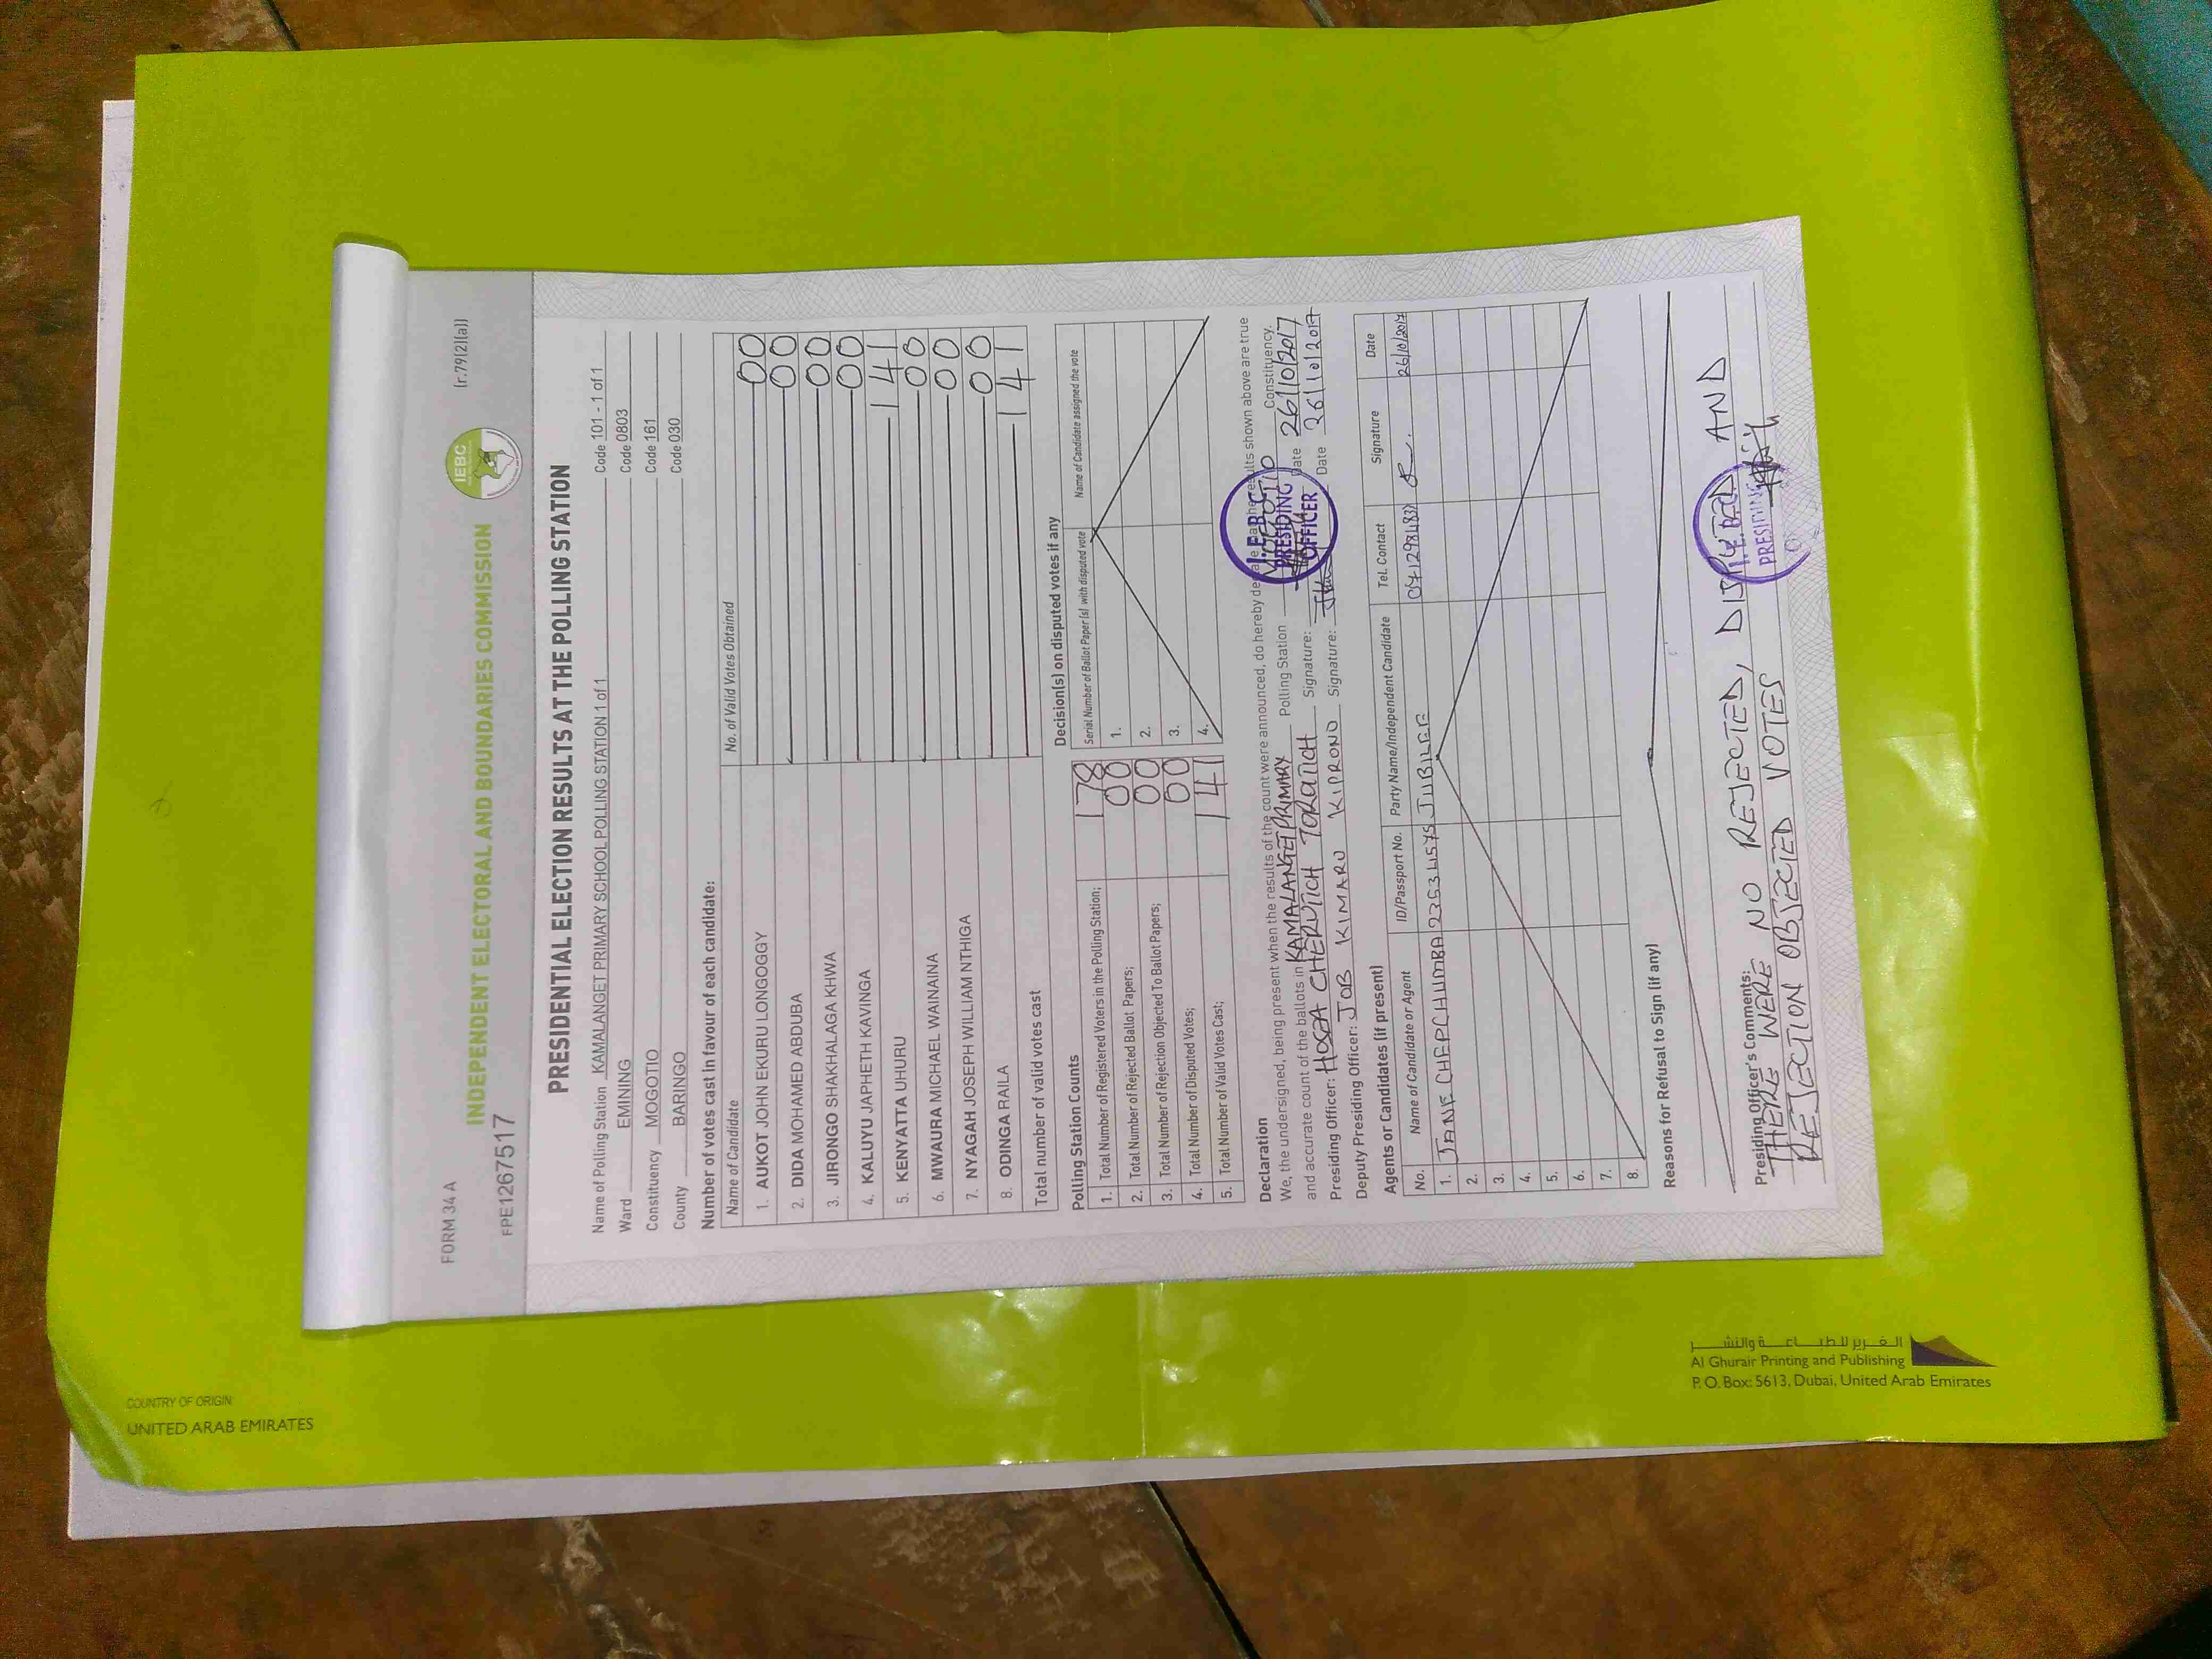 FORM 34 A
(r.79(2)(a))
IEBC
INDEPENDENT ELECTORAL AND BOUNDARIES COMMISSION
FPE1267517
PRESIDENTIAL ELECTION RESULTS AT THE POLLING STATION
Name of Polling Station KAMALANGET PRIMARY SCHOOL POLLING STATION 1 of 1 Code 101 - 1 of 1
Ward EMINING Code 0803
Constituency MOGOTIO Code 161
County BARINGO Code 030
Number of votes cast in favour of each candidate:
Name of Candidate No. of Valid Votes Obtained
1. AUKOT JOHN EKURU LONGOGGY 00
2. DIDA MOHAMED ABDUBA 00
3. JIRONGO SHAKHALAGA KHWA 00
4. KALUYU JAPHETH KAVINGA 00
5. KENYATTA UHURU 141
6. MWAURA MICHAEL WAINAINA 00
7. NYAGAH JOSEPH WILLIAM NTHIGA 00
8. ODINGA RAILA 00
Total number of valid votes cast 141
Polling Station Counts
1. Total Number of Registered Voters in the Polling Station; 178
2. Total Number of Rejected Ballot Papers; 00
3. Total Number of Rejection Objected To Ballot Papers; 00
4. Total Number of Disputed Votes; 00
5. Total Number of Valid Votes Cast; 141
Decision(s) on disputed votes if any
Serial Number of Ballot Paper (s) with disputed vote Name of Candidate assigned the vote
1.
2.
3.
4.
Declaration
We, the undersigned, being present when the results of the count were announced, do hereby declare that the results shown above are true
and accurate count of the ballots in KAMALANGET PRIMARY Polling Station MOGOTIO Constituency.
Presiding Officer: HOSEA CHERUTICH TOROITICH Signature: Date 26/10/2017
Deputy Presiding Officer: JOB KIMARU KIPRONO Signature: Date 26/10/2017
I.E.B.C
PRESIDING
OFFICER
Agents or Candidates (if present)
No. Name of Candidate or Agent ID/Passport No. Party Name/Independent Candidate Tel. Contact Signature Date
1. JANE CHEPCHUMBA JUBILEE 26/10/2017
2.
3.
4.
5.
6.
7.
8.
Reasons for Refusal to Sign (if any)
Presiding Officer's Comments:
THERE WERE NO REJECTED, DISPUTED AND
REJECTION OBJECTED VOTES
I.E.B.C
PRESIDING
COUNTRY OF ORIGIN
UNITED ARAB EMIRATES
الغرير للطباعة والنشر
Al Ghurair Printing and Publishing
P. O. Box: 5613, Dubai, United Arab Emirates